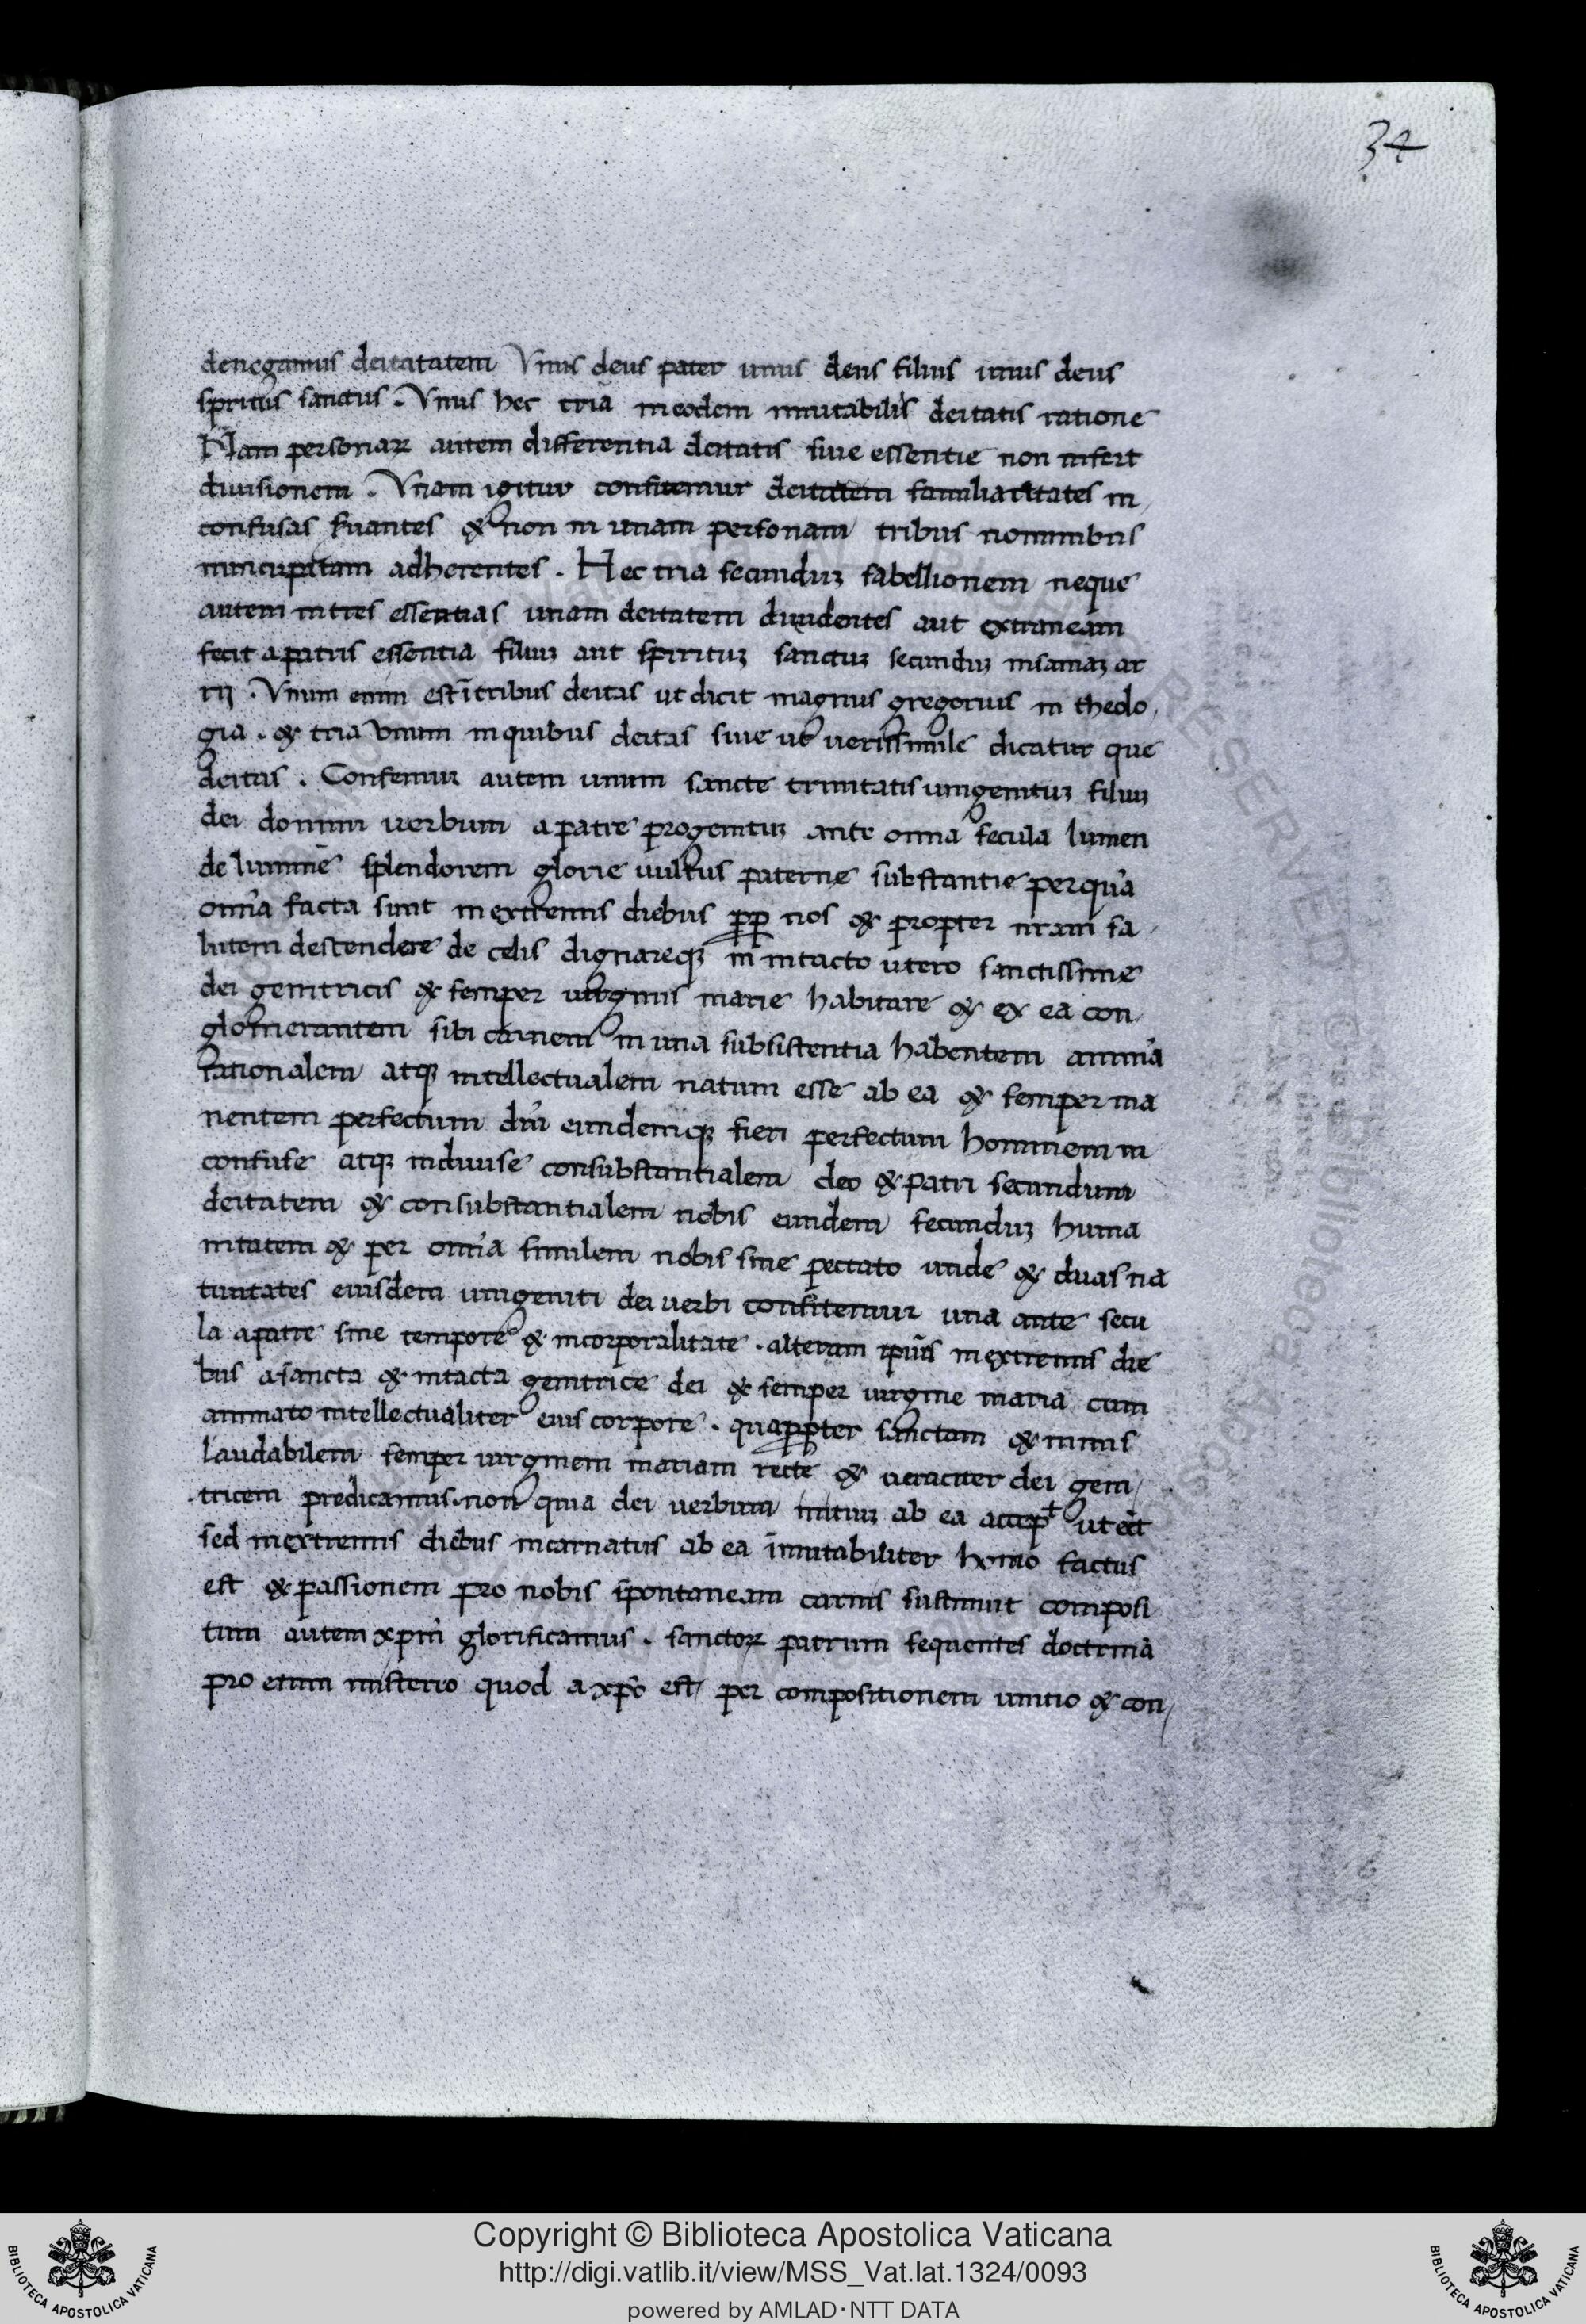 34
denegamus deitatatem Vnus deus pater unus deus filius unus deus
spritus sanctus. Vnus hec tria ineodem inmutabilis deitatis ratione
Nam personaꝝ autem differentia deitatis siue essentie non infert
diuisionem. Vnam igitur confitemur deitatem familiaritates in
confusas seruantes & non in unam personam tribus nominibus
nuncupatam adherentes. Hec tria secunduꝫ sabellionem neque
autem intres essentias unam deitatem diuidentes aut extraneam
fecit apatris essentia filiuꝫ aut spirituꝫ sanctuꝫ secunduꝫ insaniaꝫ ar
rij. Vnum enim est ītribus deitas ut dicit magnus gregorius in theolo
gia. & tria vnum inquibus deitas siue ut uerissimile dicatur que
deitas. Confitemur autem unum sancte trinitatis unigenituꝫ filiuꝫ
dei domini uerbum apatre progenituꝫ ante omnia secula lumen
de lumine splendorem glorie uultus paterne substantie perquā
omīa facta sunt inextremis diebus ꝓꝑ nos & propter nrām sa
lutem descendere de celis dignareqꝫ in intacto utero sanctissime
dei genitricis & semper uirginis marie habitare & ex ea con
glomerantem sibi carnem in una subsistentia habentem animā
rationalem atqꝫ intellectualem natum esse ab ea & semper ma
nentem perfectum dm̄ eundemqꝫ fieri perfectum hominem in
confuse atqꝫ indiuise consubstantialem deo & patri secundum
deitatem & consubstantialem nobis eundem secunduꝫ huma
nitatem & per omīa similem nobis sine peccato unde & duas na
tiuitates eiusdem unigeniti dei uerbi confitemur una ante secu
la apatre sine tempore & incorporalitate. alteram ipsius inextremis die
bus asancta & intacta genitrice dei & semper uirgine maria cum
animato intellectualiter eius corpore. quaꝓpter sanctam & nimis
laudabilem semper uirginem mariam recte & ueraciter dei geni
tricem predicamus. non quia dei uerbum initiuꝫ ab ea accepͭ ut
sed inextremis diebus incarnatus ab ea īmutabiliter homo factus
est & passionem pro nobis spontaneam carnis sustinuit composi
tum autem xp̄m glorificamus. sanctoꝝ patrum sequentes doctrinā
pro etenim misterio quod a xp̄o est per compositionem unitio & con
Copyright © Biblioteca Apostolica Vaticana
http://digi.vatlib.it/view/MSS_Vat.lat.1324/0093
powered by AMLAD·NTT DATA
BIBLIOTECA APOSTOLICA VATICANA
BIBLIOTECA APOSTOLICA VATICANA